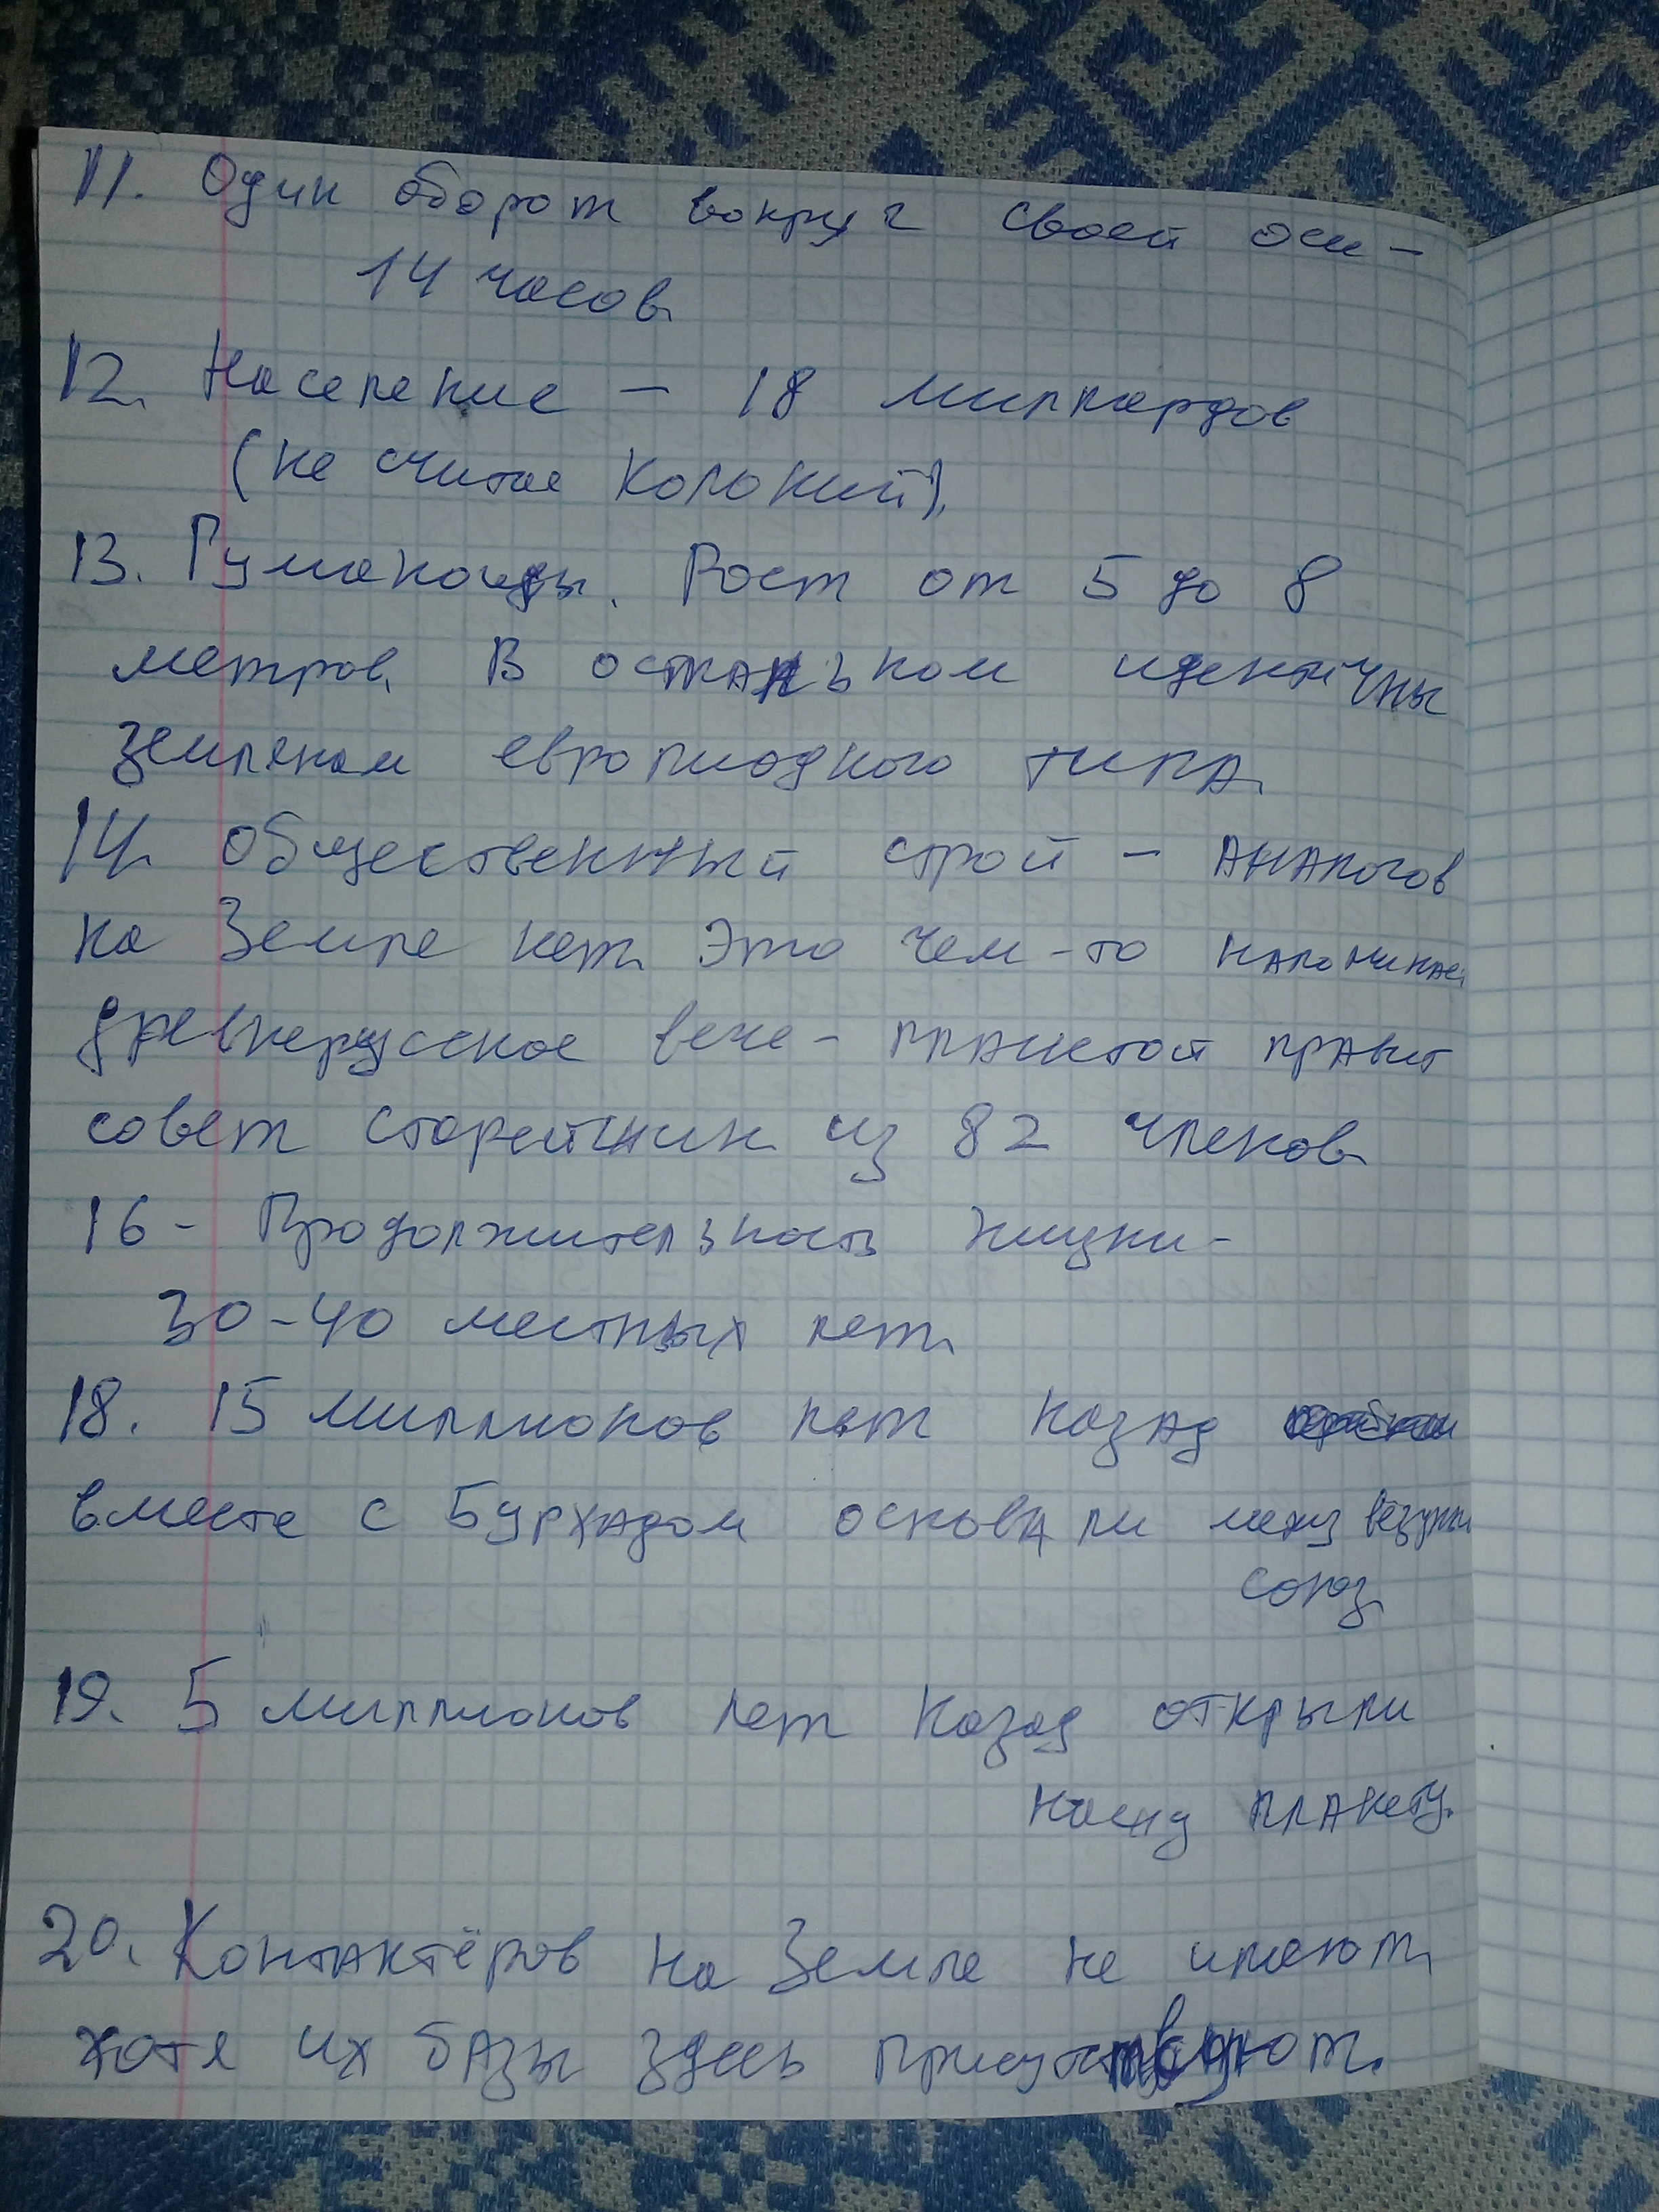 11. Один оборот вокруг своей оси –
14 часов.
12. Население – 18 миллиардов
(не считая колоний).
13. Гуманоиды. Рост от 5 до 8
метров. В остальном идентичны
землянам европиодного типа.
14. Общественный строй – аналогов
на Земле нет. Это чем-то напоминает
древнерусское вече – планетой правит
совет старейшин из 82 членов.
16 – Продолжительность жизни –
30-40 местных лет.
18. 15 миллионов лет назад
вместе с Бурхадом основали
союз.
19. 5 миллионов лет назад открыли
нашу планету.
20. Контактёров на Земле не имеют,
хотя их базы здесь присутствуют.